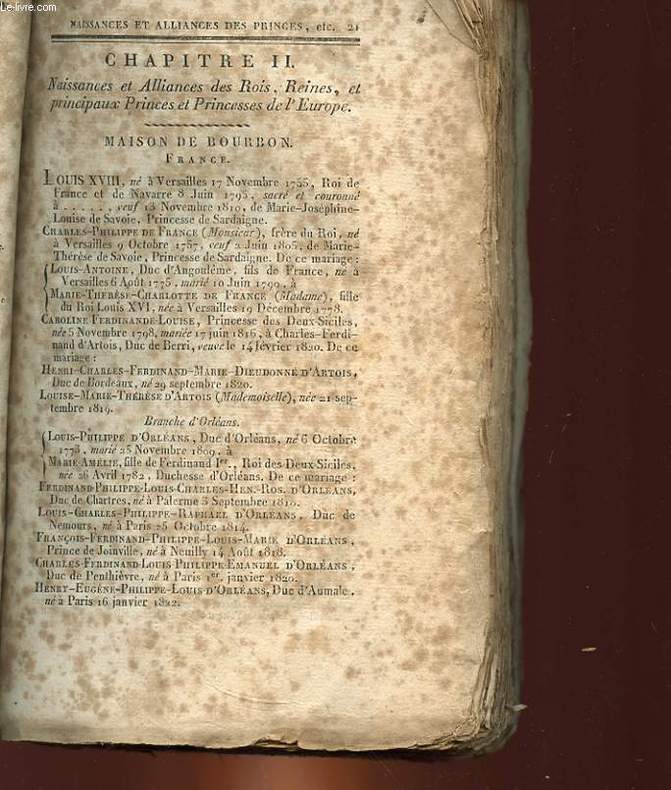 Le-livre.com
NAISSANCES ET ALLIANCES DES PRINCES, etc. 21
CHAPITRE II.
Naissances et Alliances des Rois, Reines, et
principaux Princes et Princesses de l'Europe.
MAISON DE BOURBON.
FRANCE.
LOUIS XVIII, né à Versailles 17 Novembre 1755, Roi de
France et de Navarre 8 Juin 1795, sacré et couronné
à . . . . . , veuf 13 Novembre 1810, de Marie-Joséphine-
Louise de Savoie, Princesse de Sardaigne.
CHARLES-PHILIPPE DE FRANCE (Monsieur), frère du Roi, né
à Versailles 9 Octobre 1757, veuf 2 Juin 1805, de Marie-
Thérèse de Savoie, Princesse de Sardaigne. De ce mariage :
LOUIS-ANTOINE, Duc d'Angoulême, fils de France, né à
Versailles 6 Août 1775, marié 10 Juin 1799, à
MARIE-THÉRÈSE-CHARLOTTE DE FRANCE (Madame), fille
du Roi Louis XVI, née à Versailles 19 Décembre 1778.
CAROLINE-FERDINANDE-LOUISE, Princesse des Deux-Siciles,
née 5 Novembre 1798, mariée 17 juin 1816, à Charles-Ferdi-
nand d'Artois, Duc de Berri, veuve le 14 février 1820. De ce
mariage :
HENRI-CHARLES-FERDINAND-MARIE-DIEUDONNÉ D'ARTOIS,
Duc de Bordeaux, né 29 septembre 1820.
LOUISE-MARIE-THÉRÈSE D'ARTOIS (Mademoiselle), née 21 sep-
tembre 1819.
Branche d'Orléans.
LOUIS-PHILIPPE D'ORLÉANS, Duc d'Orléans, né 6 Octobre
1773, marié 25 Novembre 1809, à
MARIE-AMÉLIE, fille de Ferdinand Ier., Roi des Deux-Siciles,
née 26 Avril 1782, Duchesse d'Orléans. De ce mariage :
FERDINAND-PHILIPPE-LOUIS-CHARLES-HEN.-ROS. D'ORLÉANS,
Duc de Chartres, né à Palerme 3 Septembre 1810.
LOUIS-CHARLES-PHILIPPE-RAPHAEL D'ORLÉANS, Duc de
Nemours, né à Paris 25 Octobre 1814.
FRANÇOIS-FERDINAND-PHILIPPE-LOUIS-MARIE D'ORLÉANS,
Prince de Joinville, né à Neuilly 14 Août 1818.
CHARLES-FERDINAND-LOUIS-PHILIPPE-EMANUEL D'ORLÉANS,
Duc de Penthièvre, né à Paris 1er. janvier 1820.
HENRY-EUGÈNE-PHILIPPE-LOUIS D'ORLÉANS, Duc d'Aumale,
né à Paris 16 janvier 1822.